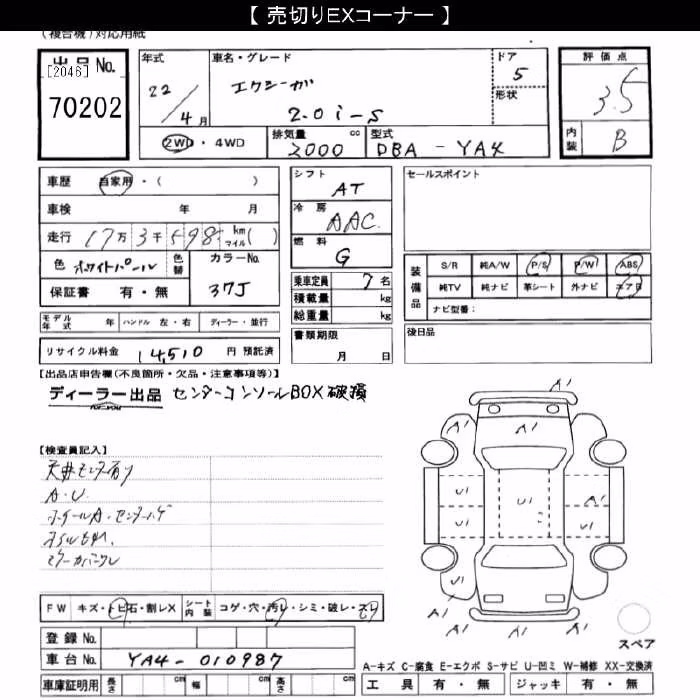 【 売切りEXコーナー 】
(複合機)対応用紙
出品No.
[2046]
70202
年式
22/4月
車名・グレード
エクシーガ
2.0i-S
ドア
5
形状
評価点
3.5
内装
B
2WD・4WD
排気量 cc
2000
型式
DBA - YA4
車歴 自家用・( )
車検 年 月
走行 17万3千598 km マイル( )
色 ホワイトパール
色替
カラーNo.
37J
保証書 有・無
シフト
AT
冷房
AAC
燃料
G
乗車定員 7名
積載量 kg
総重量 kg
セールスポイント
装備品
S/R 純A/W P/S P/W ABS
純TV 純ナビ 革シート 外ナビ エアB
ナビ型番:
モデル年式 年 ハンドル 左・右 ディーラー・並行
書類期限
月 日
後日品
リサイクル料金 14,510 円 預託済
【出品店申告欄(不良箇所・欠品・注意事項等)】
ディーラー出品 センターコンソールBOX破損
【検査員記入】
A・U
A1
A1 A1 A1
U1 U1 A1
U1 U1
U1
A1 A1 A1
FW キズ・トビ石・割レX シート内装 コゲ・穴・汚レ・シミ・破レ・スレ
スペア
登録No.
車台No. YA4-010987
A-キズ C-腐食 E-エクボ S-サビ U-凹ミ W-補修 XX-交換済
車庫証明用 長さ cm 幅 cm 高さ cm
工具 有・無 ジャッキ 有・無